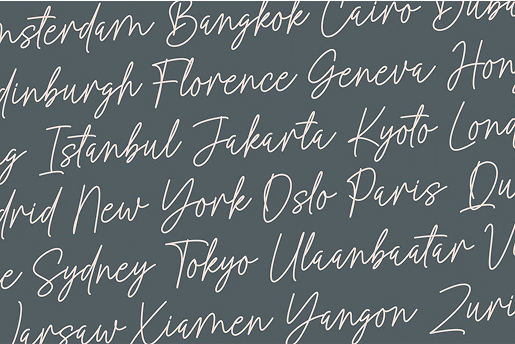 msterdam Bangkok Cairo Duba
dinburgh Florence Geneva Hon
g Istanbul Jakarta Kyoto Lond
drid New York Oslo Paris Qu
e Sydney Tokyo Ulaanbaatar V
arsaw Xiamen Yangon Zuri